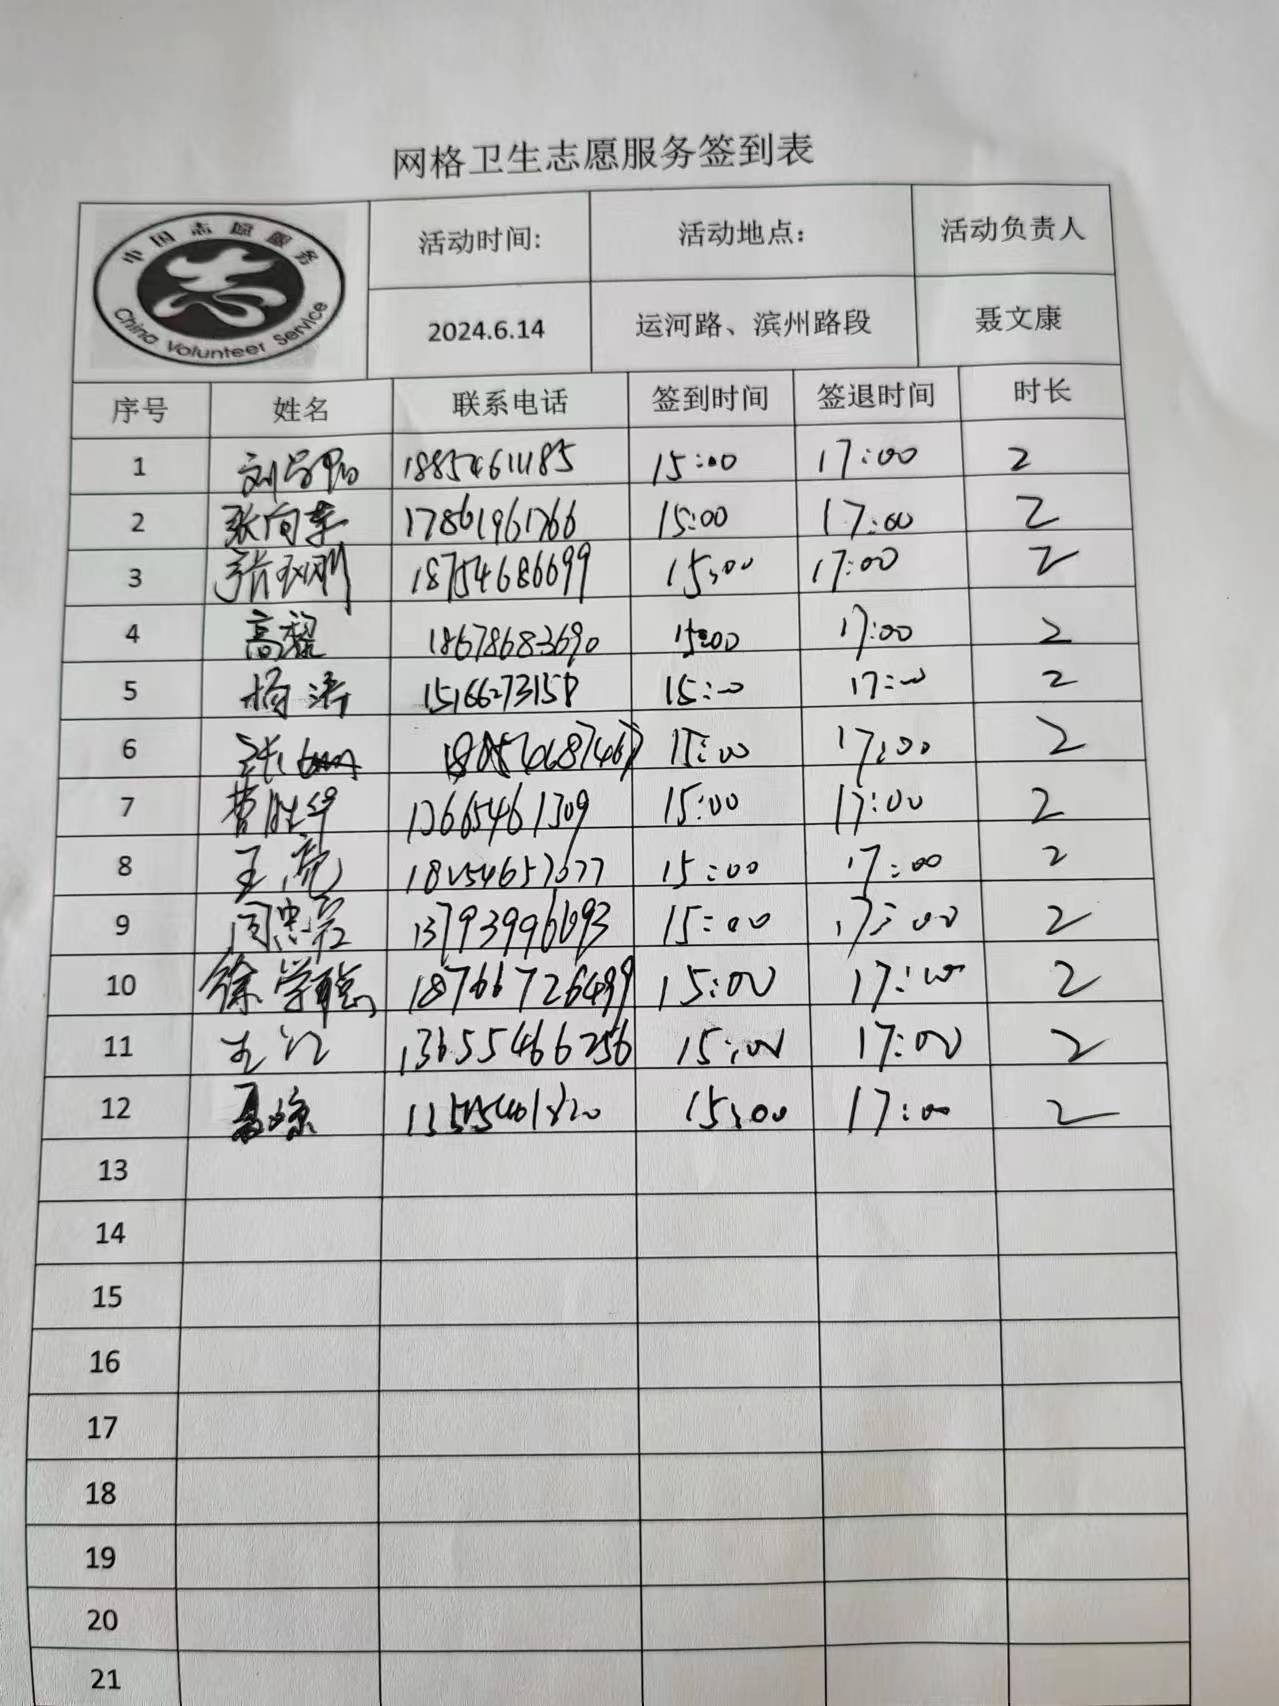 网格卫生志愿服务签到表
中国志愿服务
China Volunteer Service
活动时间: 活动地点： 活动负责人
2024.6.14 运河路、滨州路段 聂文康
序号 姓名 联系电话 签到时间 签退时间 时长
1 18854611185 15:00 17:00 2
2 张向东 17861961766 15:00 17:00 2
3 18754686699 15:00 17:00 2
4 高黎 18678683690 15:00 17:00 2
5 杨涛 15166273158 15:00 17:00 2
6 15:00 17:00 2
7 曹胜华 13665461309 15:00 17:00 2
8 王亮 15:00 17:00 2
9 13793996693 15:00 17:00 2
10 徐学聪 18766726499 15:00 17:00 2
11 13655466256 15:00 17:00 2
12 15:00 17:00 2
13
14
15
16
17
18
19
20
21